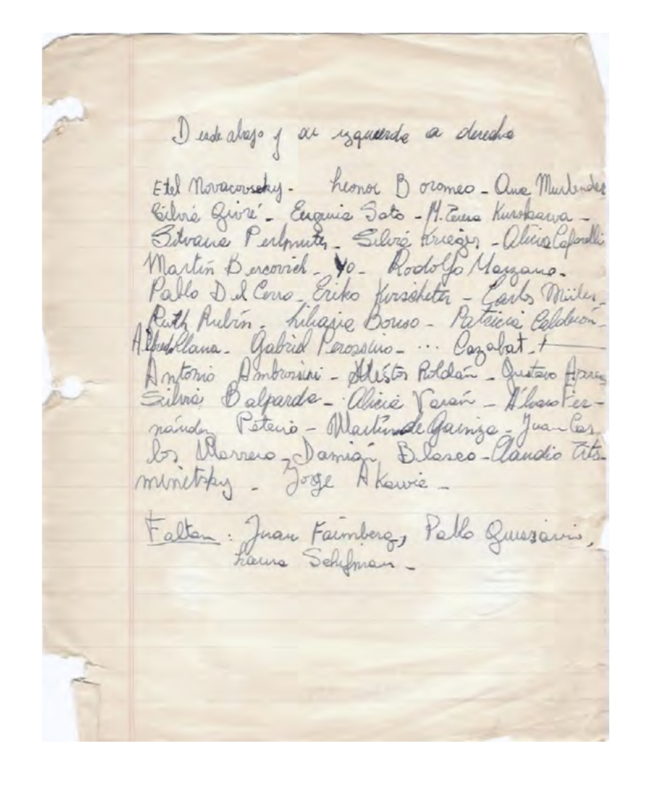 Desde abajo y de izquierda a derecha
Etel Novacovsky - Leonor Boromeo - Ana
Silvia - Eugenia Soto - M. Teresa Kurokawa -
Silvana Perlmuter - Silvia Krieger - Alicia Caforelli
Martín Bercovich - yo - Rodolfo Manzano -
Pablo Del Cerro - Eriko - Carlos
Ruth Rubín - Liliana - Patricia Calderón -
Llana - Gabriel - ... Cazabat †
Antonio Ambrosini - Néstor Roldán - Gustavo
Silvia Balparda - Alicia - Alvaro Fer-
nández Peteiro - Martín de Gainza - Juan Car-
los Marrero - Damián Blasco - Claudio
minetzky - Jorge
Faltan: Juan Faimberg, Pablo
Laura Schifman -